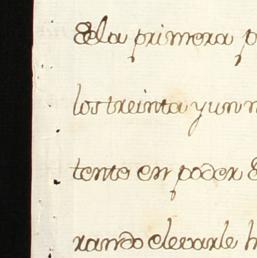 de la primera p
los treinta y un n
tento en poder d
rando elevarle h